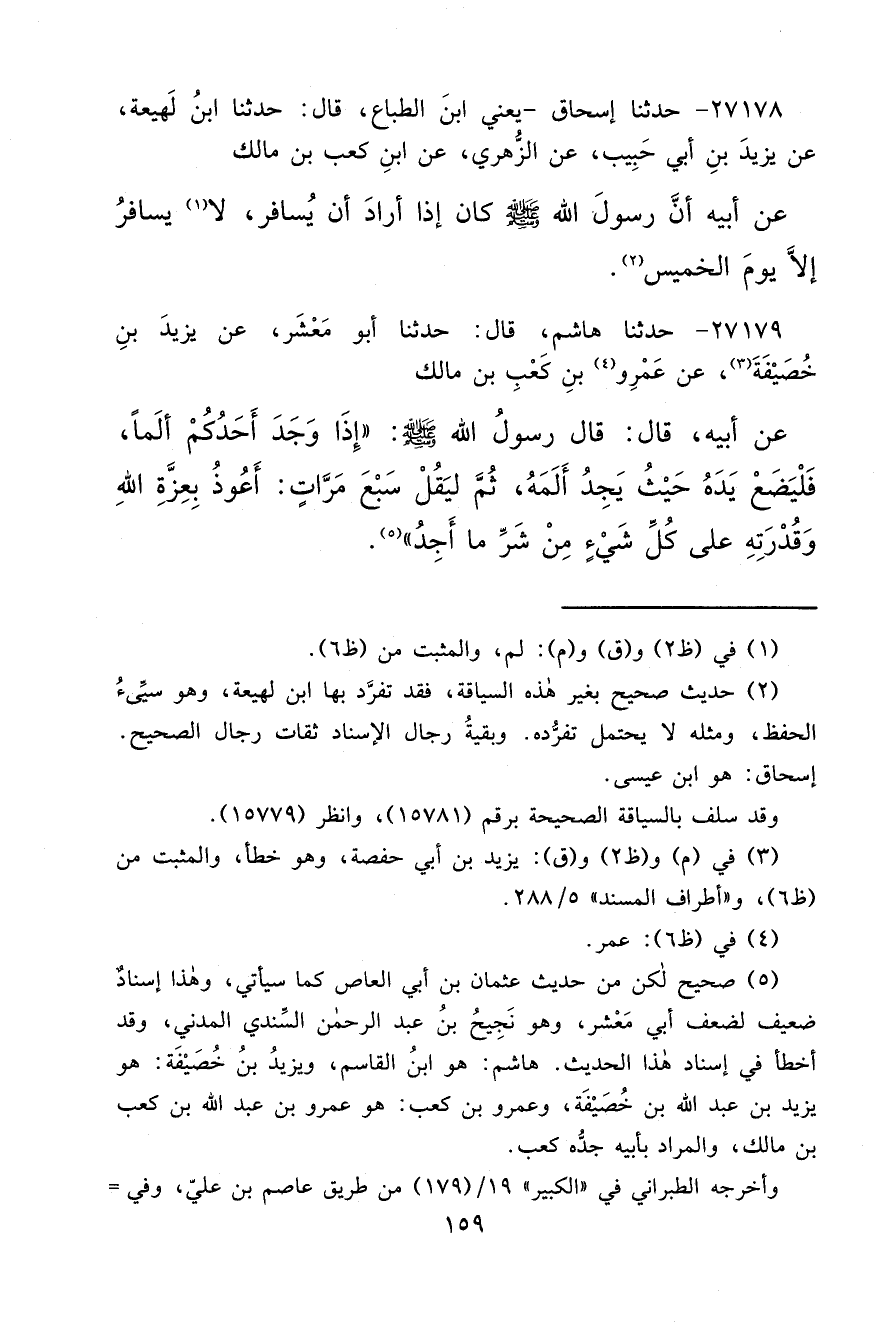 ٢٧١٧٨- حدثنا إسحاق -يعني ابنَ الطباع، قال: حدثنا ابنُ لَهيعة،
عن يزيدَ بنِ أبي حَبِيب، عن الزُّهري، عن ابنِ كعب بن مالك
عن أبيه أنَّ رسولَ الله ﷺ كان إذا أرادَ أن يُسافر، لا(١) يسافرُ
إلاَّ يومَ الخميس(٢).
٢٧١٧٩- حدثنا هاشم، قال: حدثنا أبو مَعْشَر، عن يزيدَ بنِ
خُصَيْفَةَ(٣)، عن عَمْرِو(٤) بنِ كَعْبِ بن مالك
عن أبيه، قال: قال رسولُ الله ﷺ: «إِذَا وَجَدَ أَحَدُكُمْ أَلَماً،
فَلْيَضَعْ يَدَهُ حَيْثُ يَجِدُ أَلَمَهُ، ثُمَّ ليَقُلْ سَبْعَ مَرَّاتٍ: أَعُوذُ بِعِزَّةِ اللهِ
وَقُدْرَتِهِ على كُلِّ شَيْءٍ مِنْ شَرِّ ما أَجِدُ»(٥).
(١) في (ظ٢) و(ق) و(م): لم، والمثبت من (ظ٦).
(٢) حديث صحيح بغير هٰذه السياقة، فقد تفرَّد بها ابن لهيعة، وهو سيِّىءُ
الحفظ، ومثله لا يحتمل تفرُّده. وبقيةُ رجال الإسناد ثقات رجال الصحيح.
إسحاق: هو ابن عيسى.
وقد سلف بالسياقة الصحيحة برقم (١٥٧٨١)، وانظر (١٥٧٧٩).
(٣) في (م) و(ظ٢) و(ق): يزيد بن أبي حفصة، وهو خطأ، والمثبت من
(ظ٦)، و«أطراف المسند» ٢٨٨/٥.
(٤) في (ظ٦): عمر.
(٥) صحيح لٰكن من حديث عثمان بن أبي العاص كما سيأتي، وهٰذا إسنادٌ
ضعيف لضعف أبي مَعْشر، وهو نَجِيحُ بنُ عبد الرحمٰن السِّندي المدني، وقد
أخطأ في إسناد هٰذا الحديث. هاشم: هو ابنُ القاسم، ويزيدُ بنُ خُصَيْفَة: هو
يزيد بن عبد الله بن خُصَيْفَة، وعمرو بن كعب: هو عمرو بن عبد الله بن كعب
بن مالك، والمراد بأبيه جدُّه كعب.
وأخرجه الطبراني في «الكبير» ١٩/(١٧٩) من طريق عاصم بن عليّ، وفي =
١٥٩